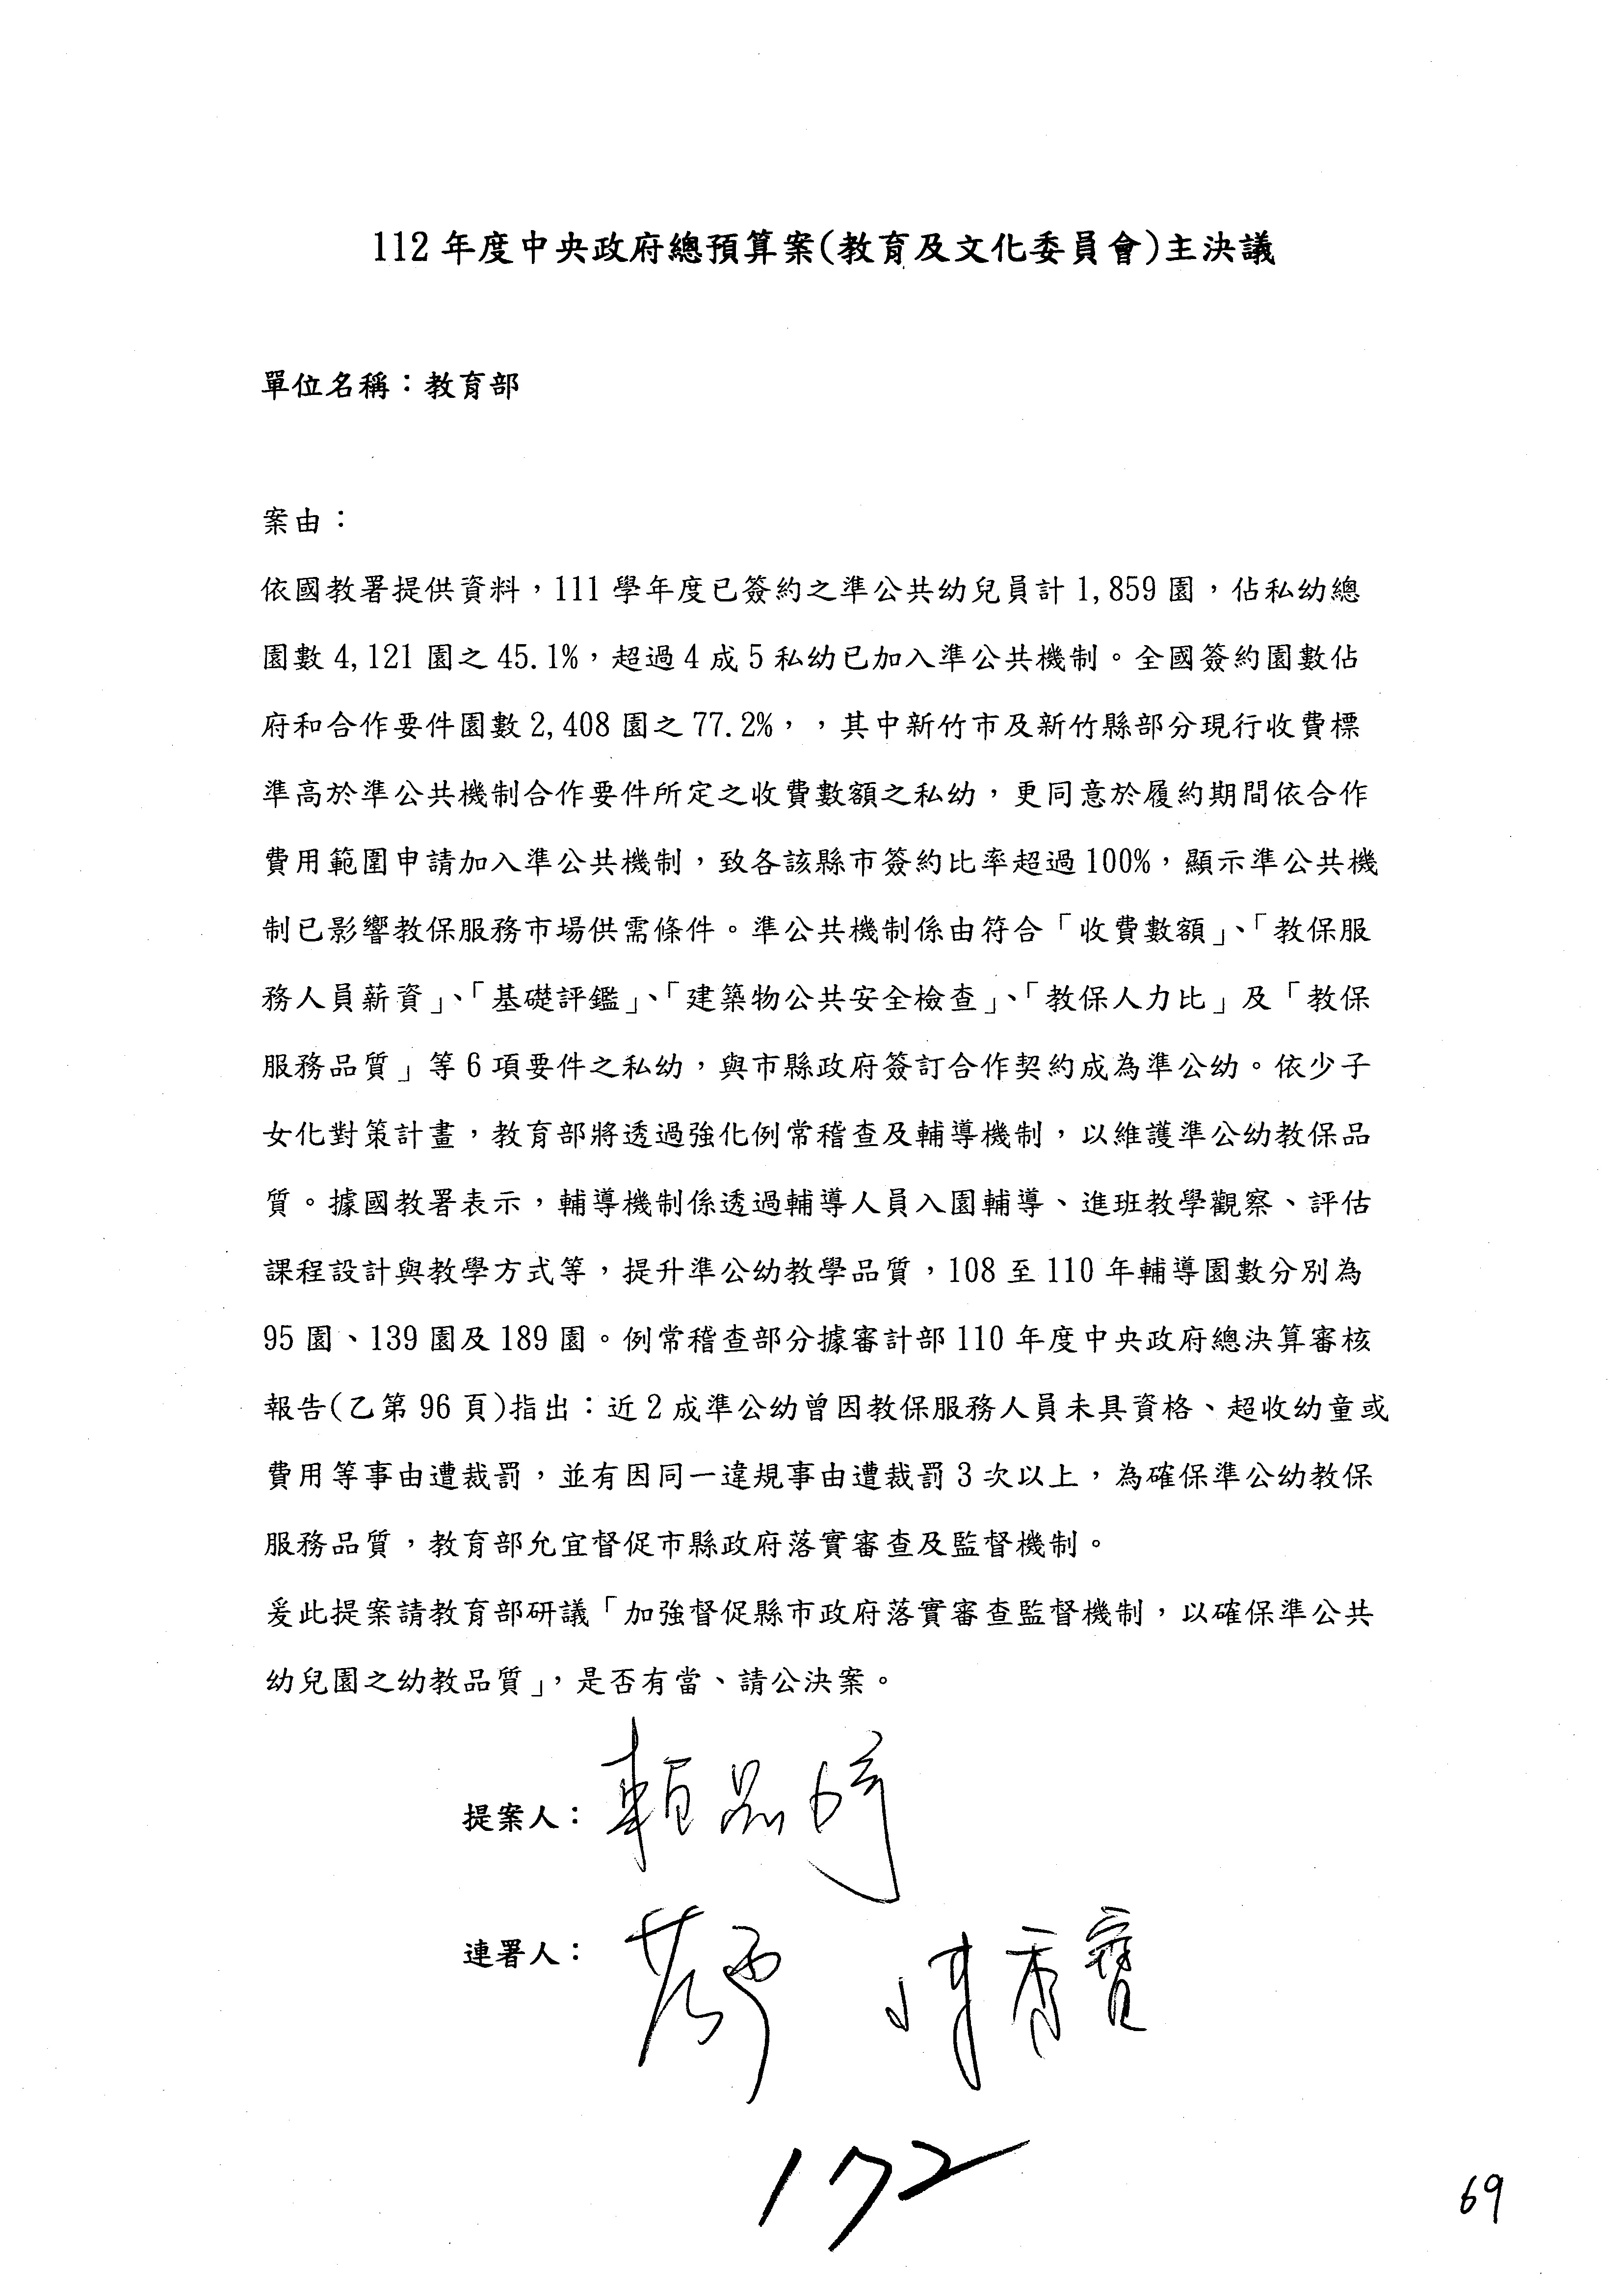 112 年度中央政府總預算案(教育及文化委員會)主決議
單位名稱：教育部
案由：
依國教署提供資料，111 學年度已簽約之準公共幼兒員計 1,859 園，佔私幼總
園數 4,121 園之 45.1%，超過 4 成 5 私幼已加入準公共機制。全國簽約園數佔
府和合作要件園數 2,408 園之 77.2%，，其中新竹市及新竹縣部分現行收費標
準高於準公共機制合作要件所定之收費數額之私幼，更同意於履約期間依合作
費用範圍申請加入準公共機制，致各該縣市簽約比率超過 100%，顯示準公共機
制已影響教保服務市場供需條件。準公共機制係由符合「收費數額」、「教保服
務人員薪資」、「基礎評鑑」、「建築物公共安全檢查」、「教保人力比」及「教保
服務品質」等 6 項要件之私幼，與市縣政府簽訂合作契約成為準公幼。依少子
女化對策計畫，教育部將透過強化例常稽查及輔導機制，以維護準公幼教保品
質。據國教署表示，輔導機制係透過輔導人員入園輔導、進班教學觀察、評估
課程設計與教學方式等，提升準公幼教學品質，108 至 110 年輔導園數分別為
95 園、139 園及 189 園。例常稽查部分據審計部 110 年度中央政府總決算審核
報告(乙第 96 頁)指出：近 2 成準公幼曾因教保服務人員未具資格、超收幼童或
費用等事由遭裁罰，並有因同一違規事由遭裁罰 3 次以上，為確保準公幼教保
服務品質，教育部允宜督促市縣政府落實審查及監督機制。
爰此提案請教育部研議「加強督促縣市政府落實審查監督機制，以確保準公共
幼兒園之幼教品質」，是否有當、請公決案。
提案人：賴品妤
連署人：
172
69